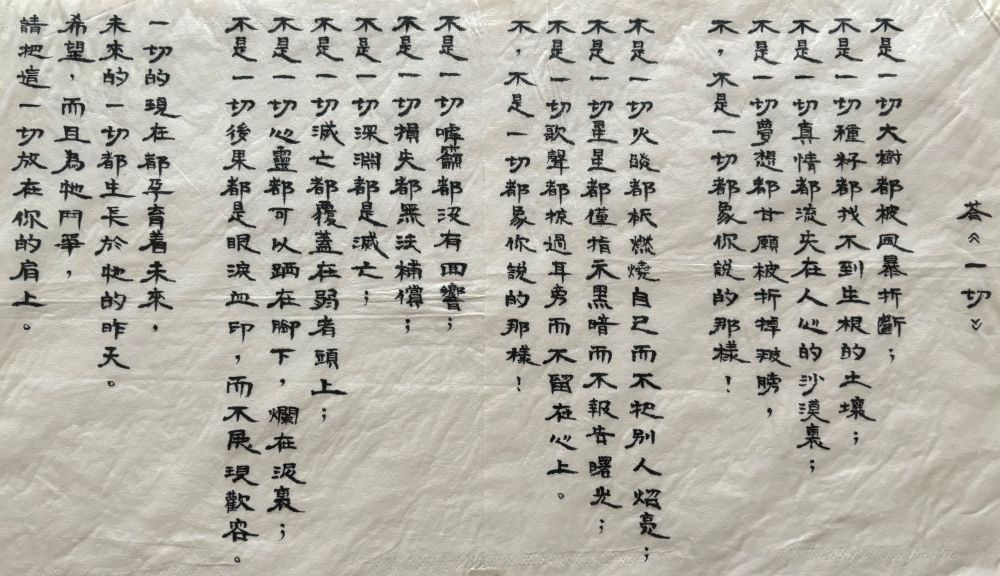 荅《一切》
不是一切大樹都被风暴折斷；
不是一切種籽都找不到生根的土壤；
不是一切真情都流失在人心的沙漠裏；
不是一切夢想都甘願被折掉翅膀，
不，不是一切都象你說的那樣！
不是一切火燄都衹燃燒自己而不把別人焰亮；
不是一切星星都僅指示黑暗而不報告曙光；
不是一切歌聲都掠過耳旁而不留在心上。
不，不是一切都象你說的那樣！
不是一切呼籲都沒有回響；
不是一切損失都無法補償；
不是一切深淵都是滅亡；
不是一切滅亡都覆蓋在弱者頭上；
不是一切心靈都可以踩在腳下，爛在泥裏；
不是一切後果都是眼淚血印，而不展現歡容。
一切的現在都孕育着未來，
未來的一切都生長於牠的昨天。
希望，而且為牠鬥爭，
請把這一切放在你的肩上。